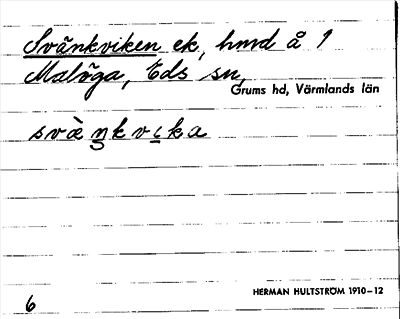 Svänkviken ek, hmd å 1
Malöga, Eds sn,
Grums hd, Värmlands län
svàŋkvịka
HERMAN HULTSTRÖM 1910–12
6